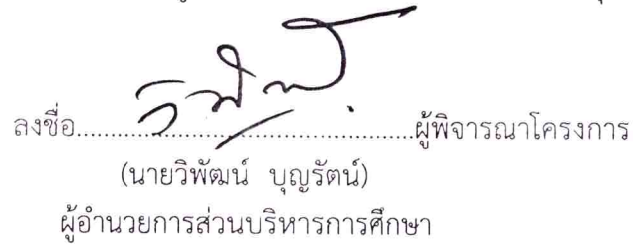 ลงชื่อ............................................ผู้พิจารณาโครงการ
(นายวิพัฒน์ บุญรัตน์)
ผู้อำนวยการส่วนบริหารการศึกษา